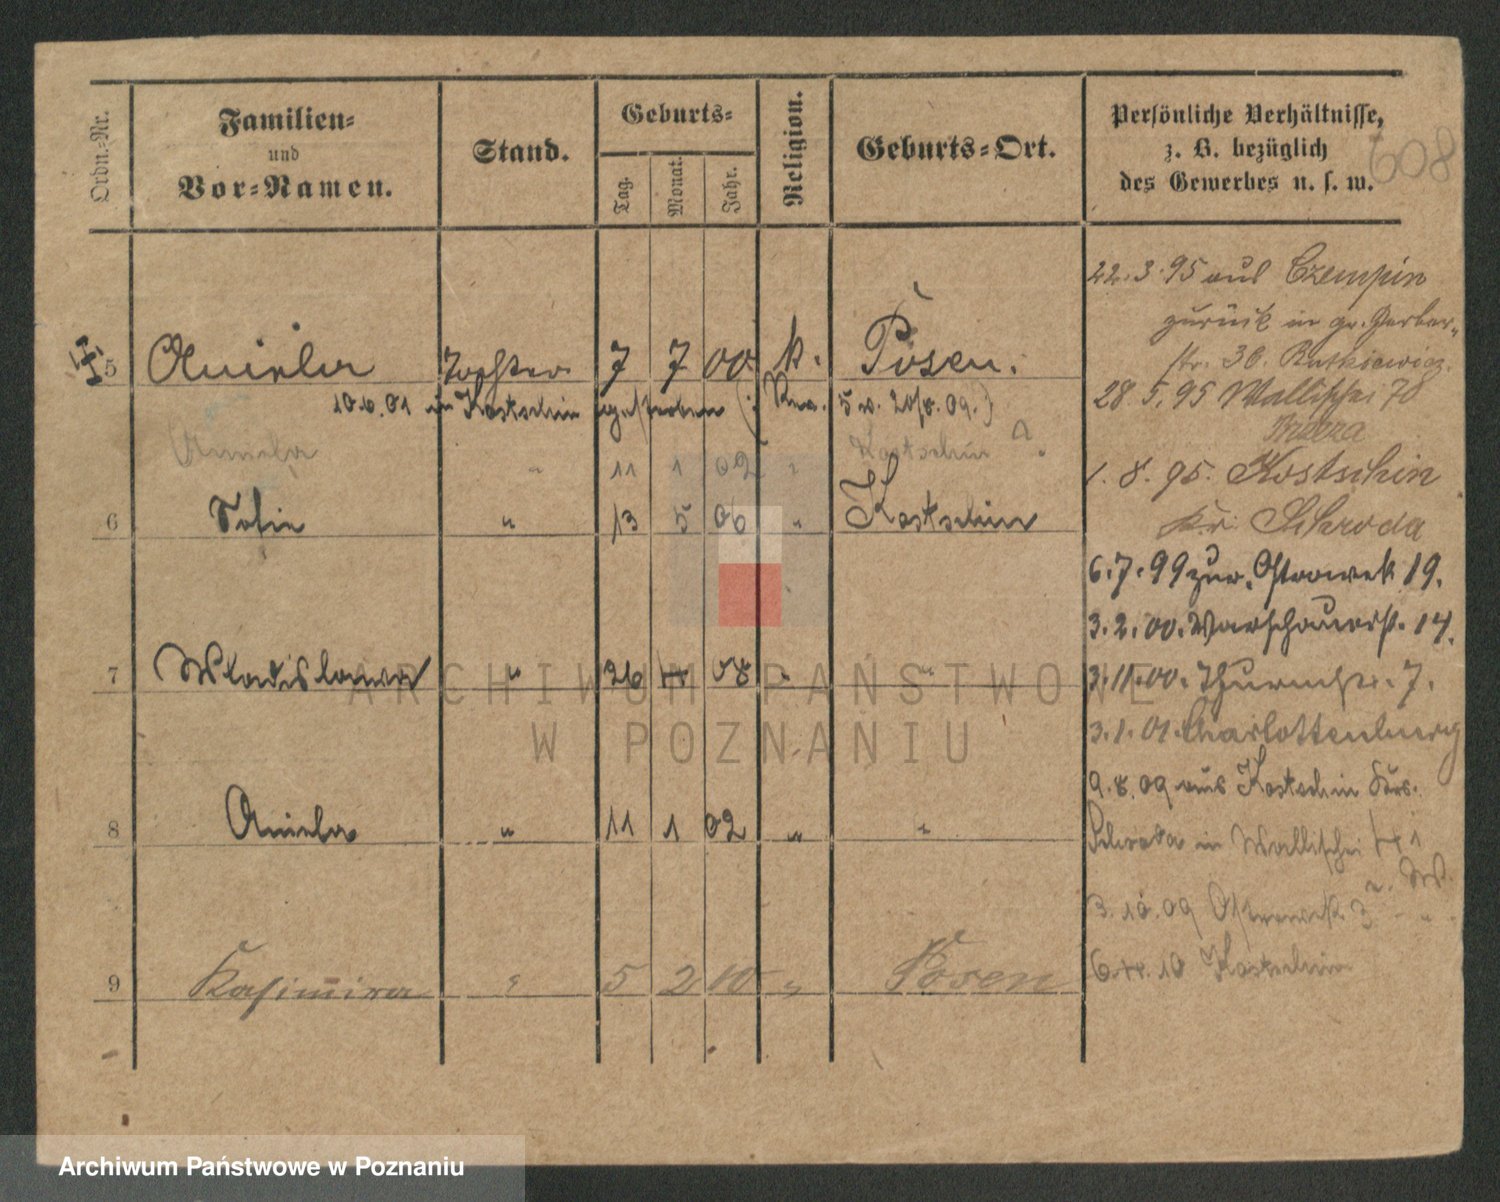 608
Ordn.-Nr.
Familien-
und
Vor-Namen.
Stand.
Geburts-
Tag.
Monat.
Jahr.
Religion.
Geburts-Ort.
Persönliche Verhältnisse,
z. B. bezüglich
des Gewerbes u. s. w.
5 Aniela Tochter 7 7 00 k. Posen.
10.6.01 in Kostschin gestorben
Aniela " 11 1 02 " Kostschin ?
6 Sofie " 13 5 06 " Kostschin
7 Wladislawa " 26 08 " "
8 Aniela " 11 1 02 " "
9 Kasimira " 5 2 10 " Posen
22.3.95 aus Czempin
zurück in gr. Gerber-
str. 36. Rutkiewicz.
28.5.95 Wallischei 78
1.8.95. Kostschin
Kr. Schroda
6.7.99 zur. Ostrowek 19.
3.2.00. Warschauerstr. 14.
3.11.00. Thurmstr. 7.
3.1.01. Charlottenburg
9.8.09 aus Kostschin Krs.
Schroda in Wallischei
3.10.09 Ostrowek 3
10 Kostschin
ARCHIWUM PAŃSTWOWE
W POZNANIU
Archiwum Państwowe w Poznaniu